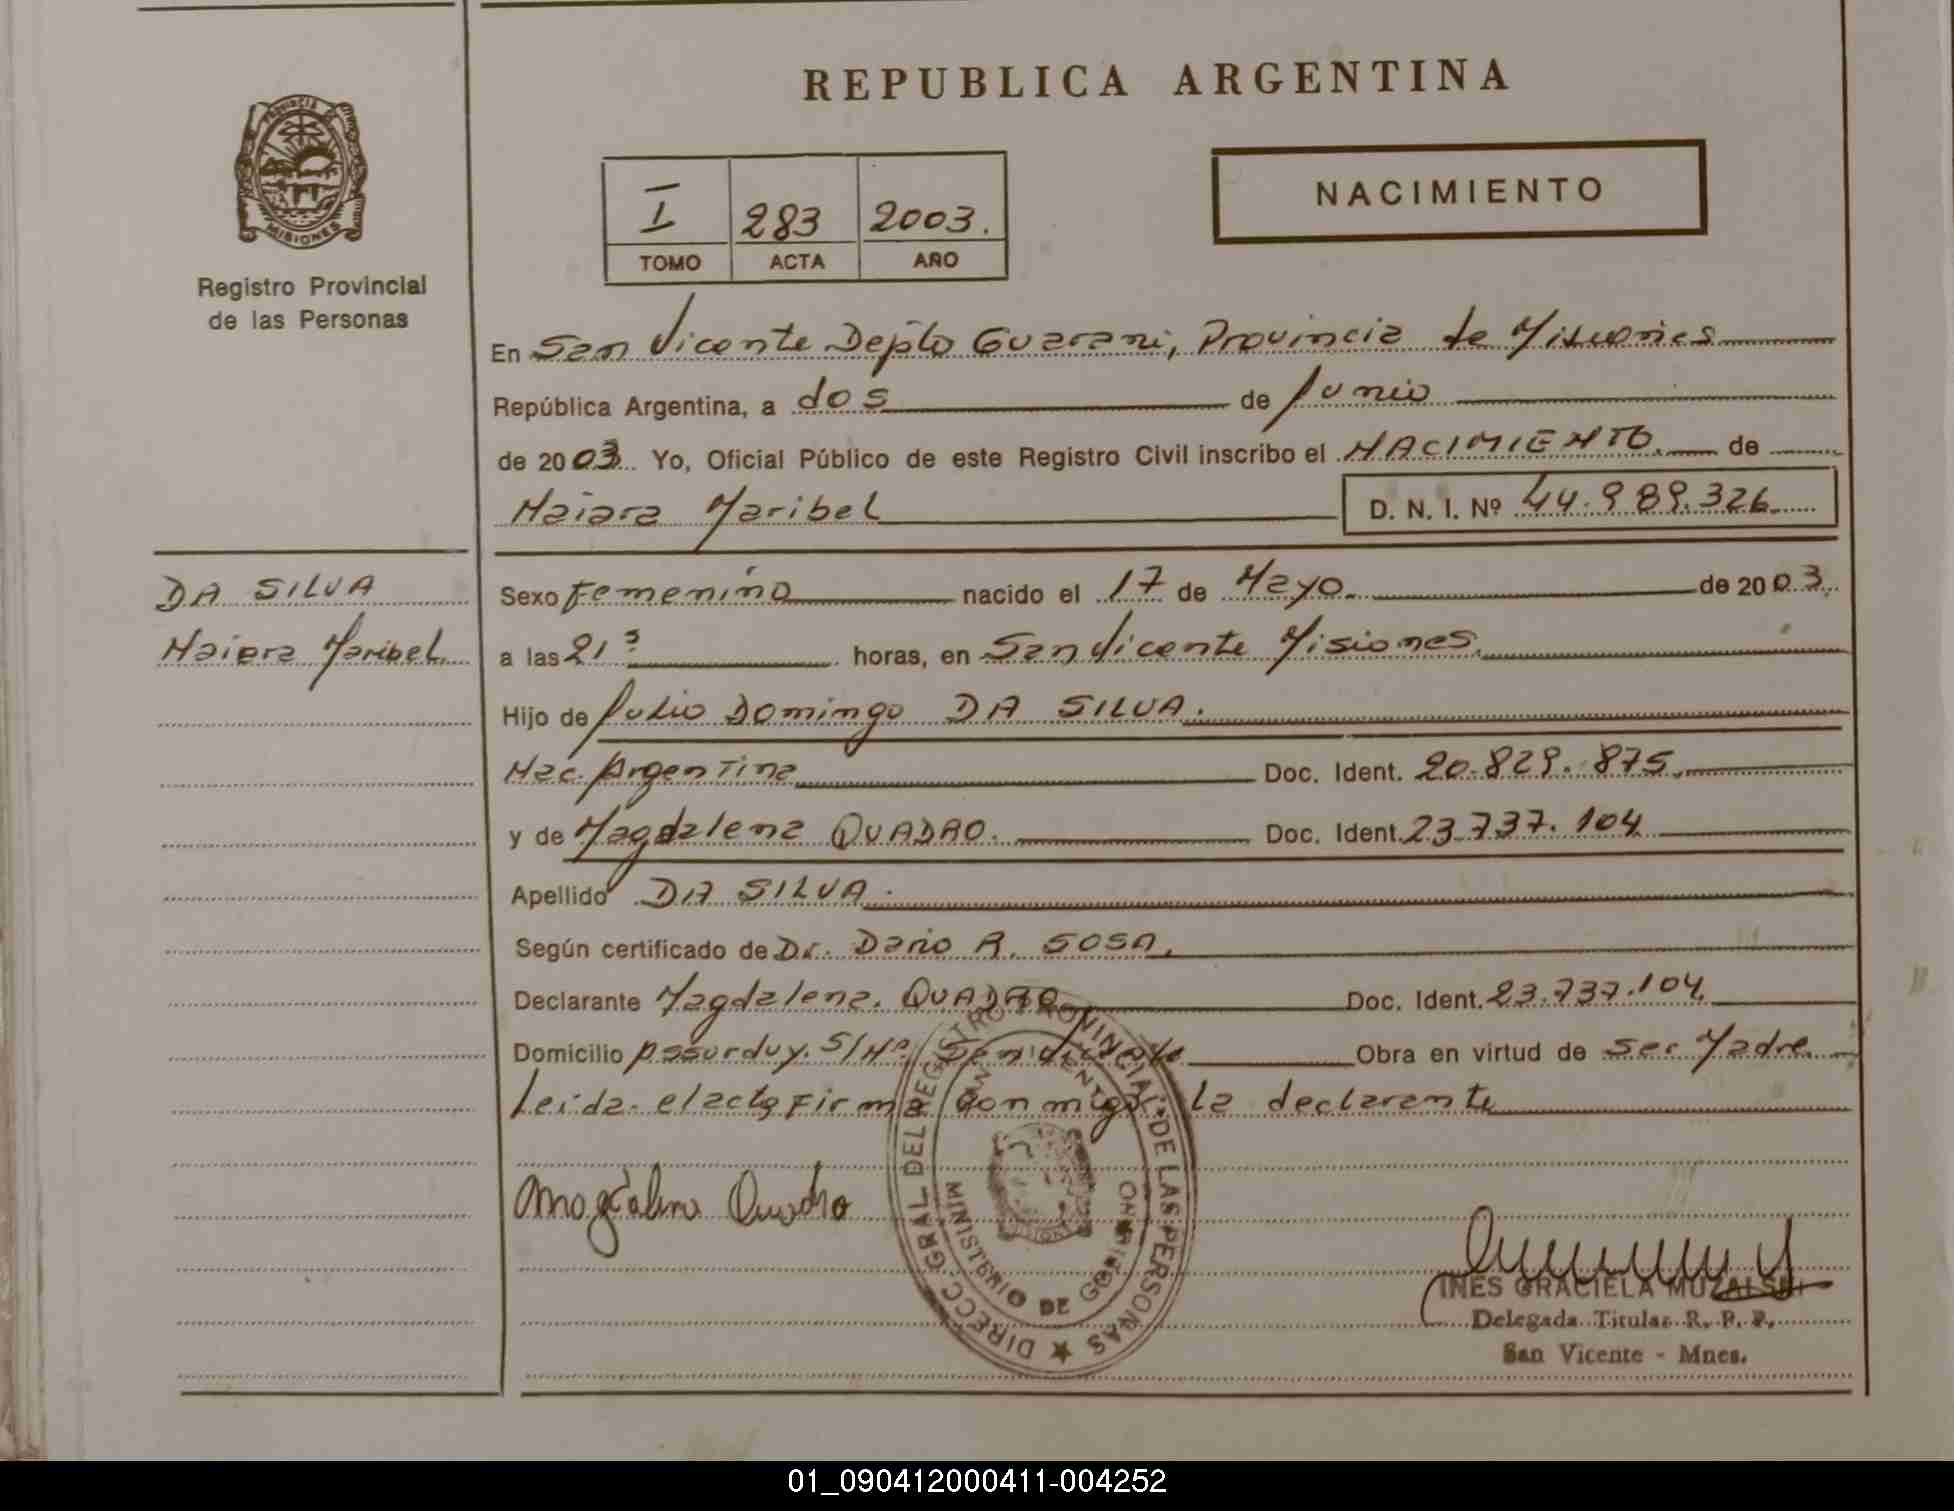 REPUBLICA ARGENTINA
PROVINCIA DE
MISIONES
Registro Provincial
de las Personas
I 283 2003.
TOMO ACTA AÑO
NACIMIENTO
En San Vicente Depto Guarani, Provincia de Misiones
República Argentina, a dos de Junio
de 2003 Yo, Oficial Público de este Registro Civil inscribo el NACIMIENTO. de
Naiara Maribel D. N. I. Nº 44.989.326
DA SILVA
Naiara Maribel
Sexo Femenino nacido el 17 de Mayo. de 2003.
a las 21 horas, en San Vicente Misiones.
Hijo de Julio Domingo DA SILVA.
Nac. Argentina Doc. Ident. 20.829.875
y de Magdalena QUADRO. Doc. Ident. 23.737.104
Apellido DA SILVA.
Según certificado de Dr. Dario R. SOSA.
Declarante Magdalena. QUADRO Doc. Ident. 23.737.104
Domicilio Assurduy. S/Nº San Vicente Obra en virtud de ser Madre.
Leida el acta firma conmigo la declarante
Magdalena Quadro
DIRECC. GRAL DEL REGISTRO PROVINCIAL DE LAS PERSONAS ★
SAN VICENTE
MINISTERIO DE GOBIERNO
INES GRACIELA MUZALSKI
Delegada Titular R. P. P.
San Vicente - Mnes.
01_090412000411-004252